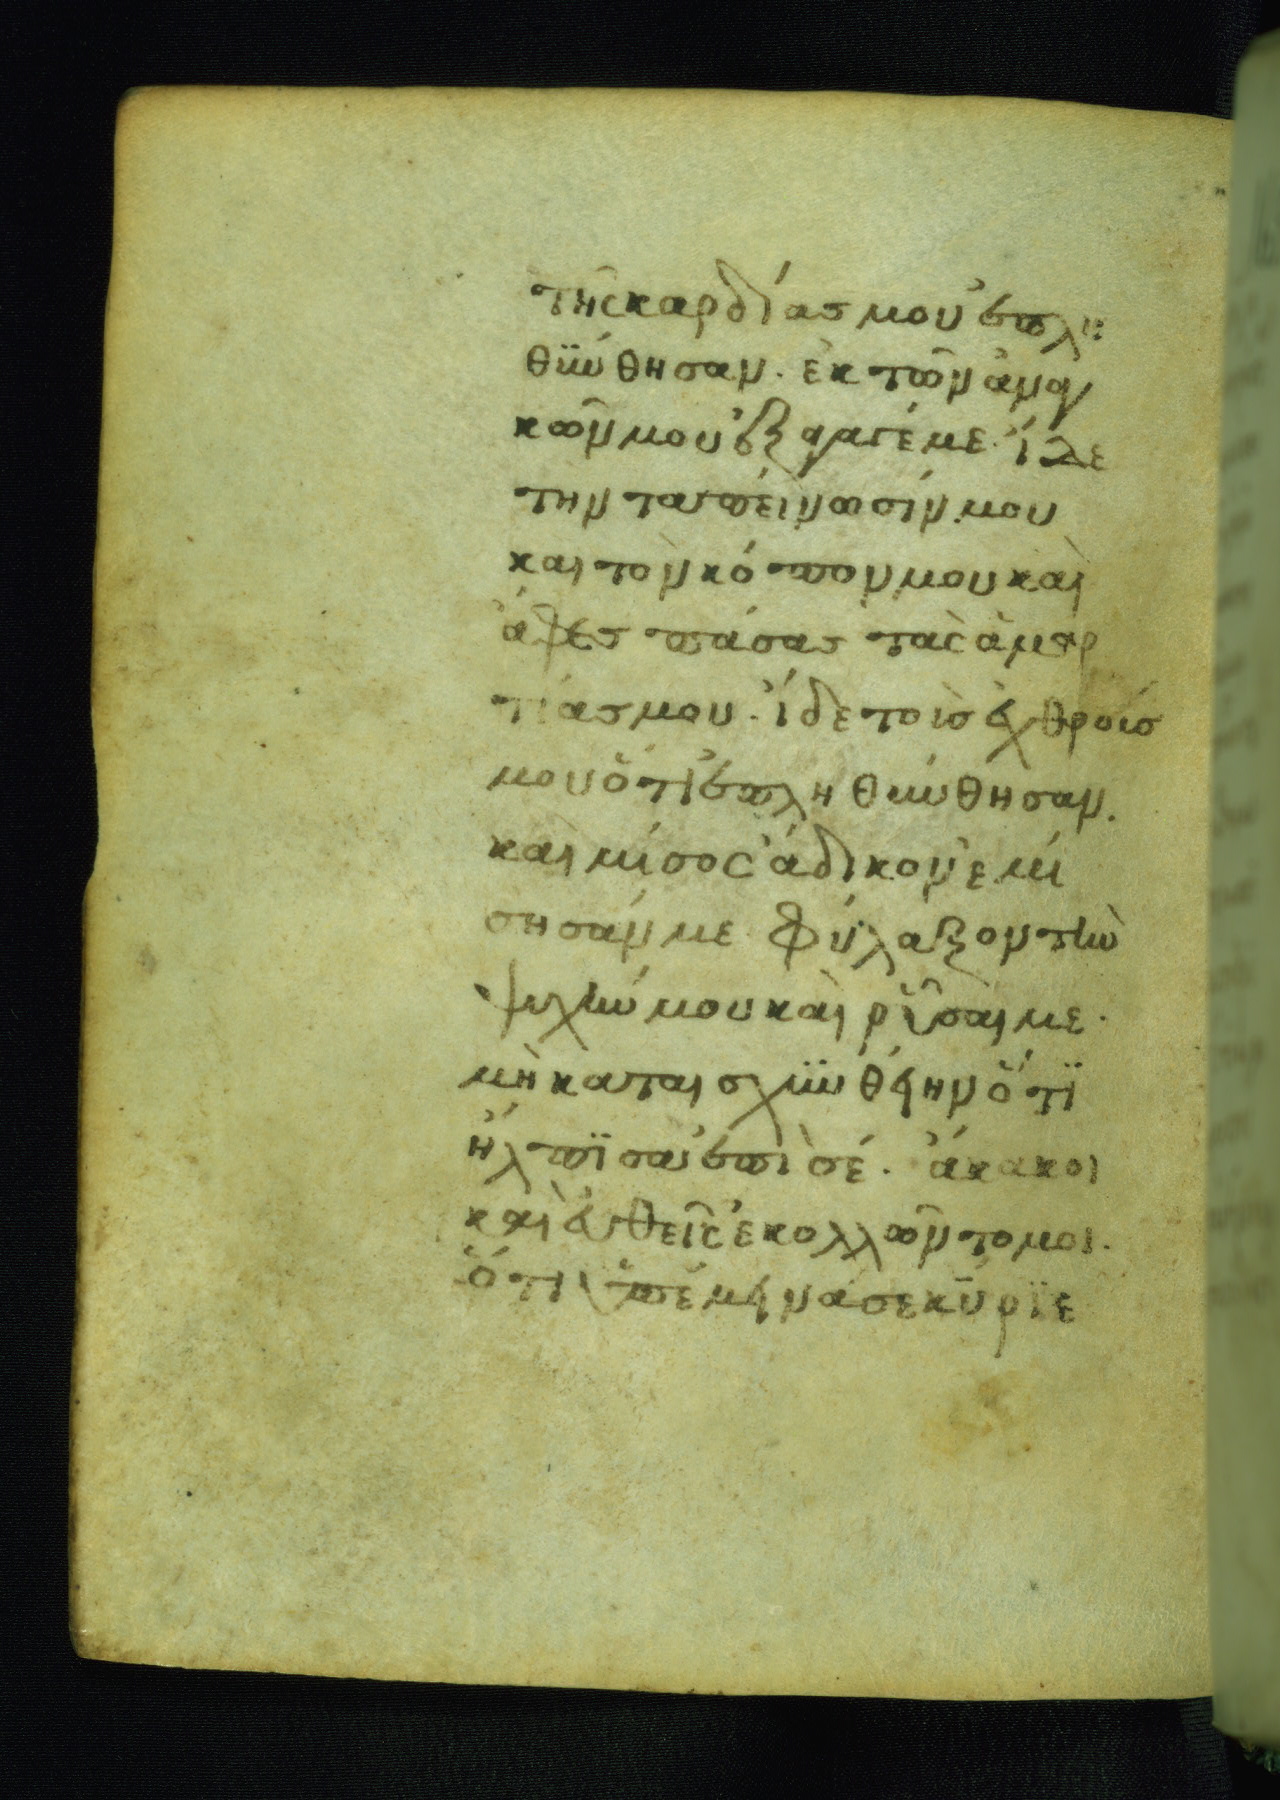 τῆς καρδίας μου ἐπλη
θύνθησαν· ἐκ τῶν ἀναγ
κῶν μου ἐξάγαγέ με· ἴδε
την ταπείνωσίν μου
και τὸν κόπον μου καὶ
ἄφες πάσας τὰς ἁμαρ
τίας μου· ἴδε τοὶς ἐχθροίς
μου ὅτι ἐπληθύνθησαν·
και μίσος ἄδικον ἐμί
σησάν με φύλαξον τὴν
ψυχήν μου καὶ ρῦσαί με·
μὴ καταισχυνθείην ὅτϊ
ἤλπϊσα ἐπὶ σέ· ἄκακοι
καὶ ἐυθεῖς ἐκολλῶντο μοι·
ὅτι ὑπέμεινά σε κύρϊε